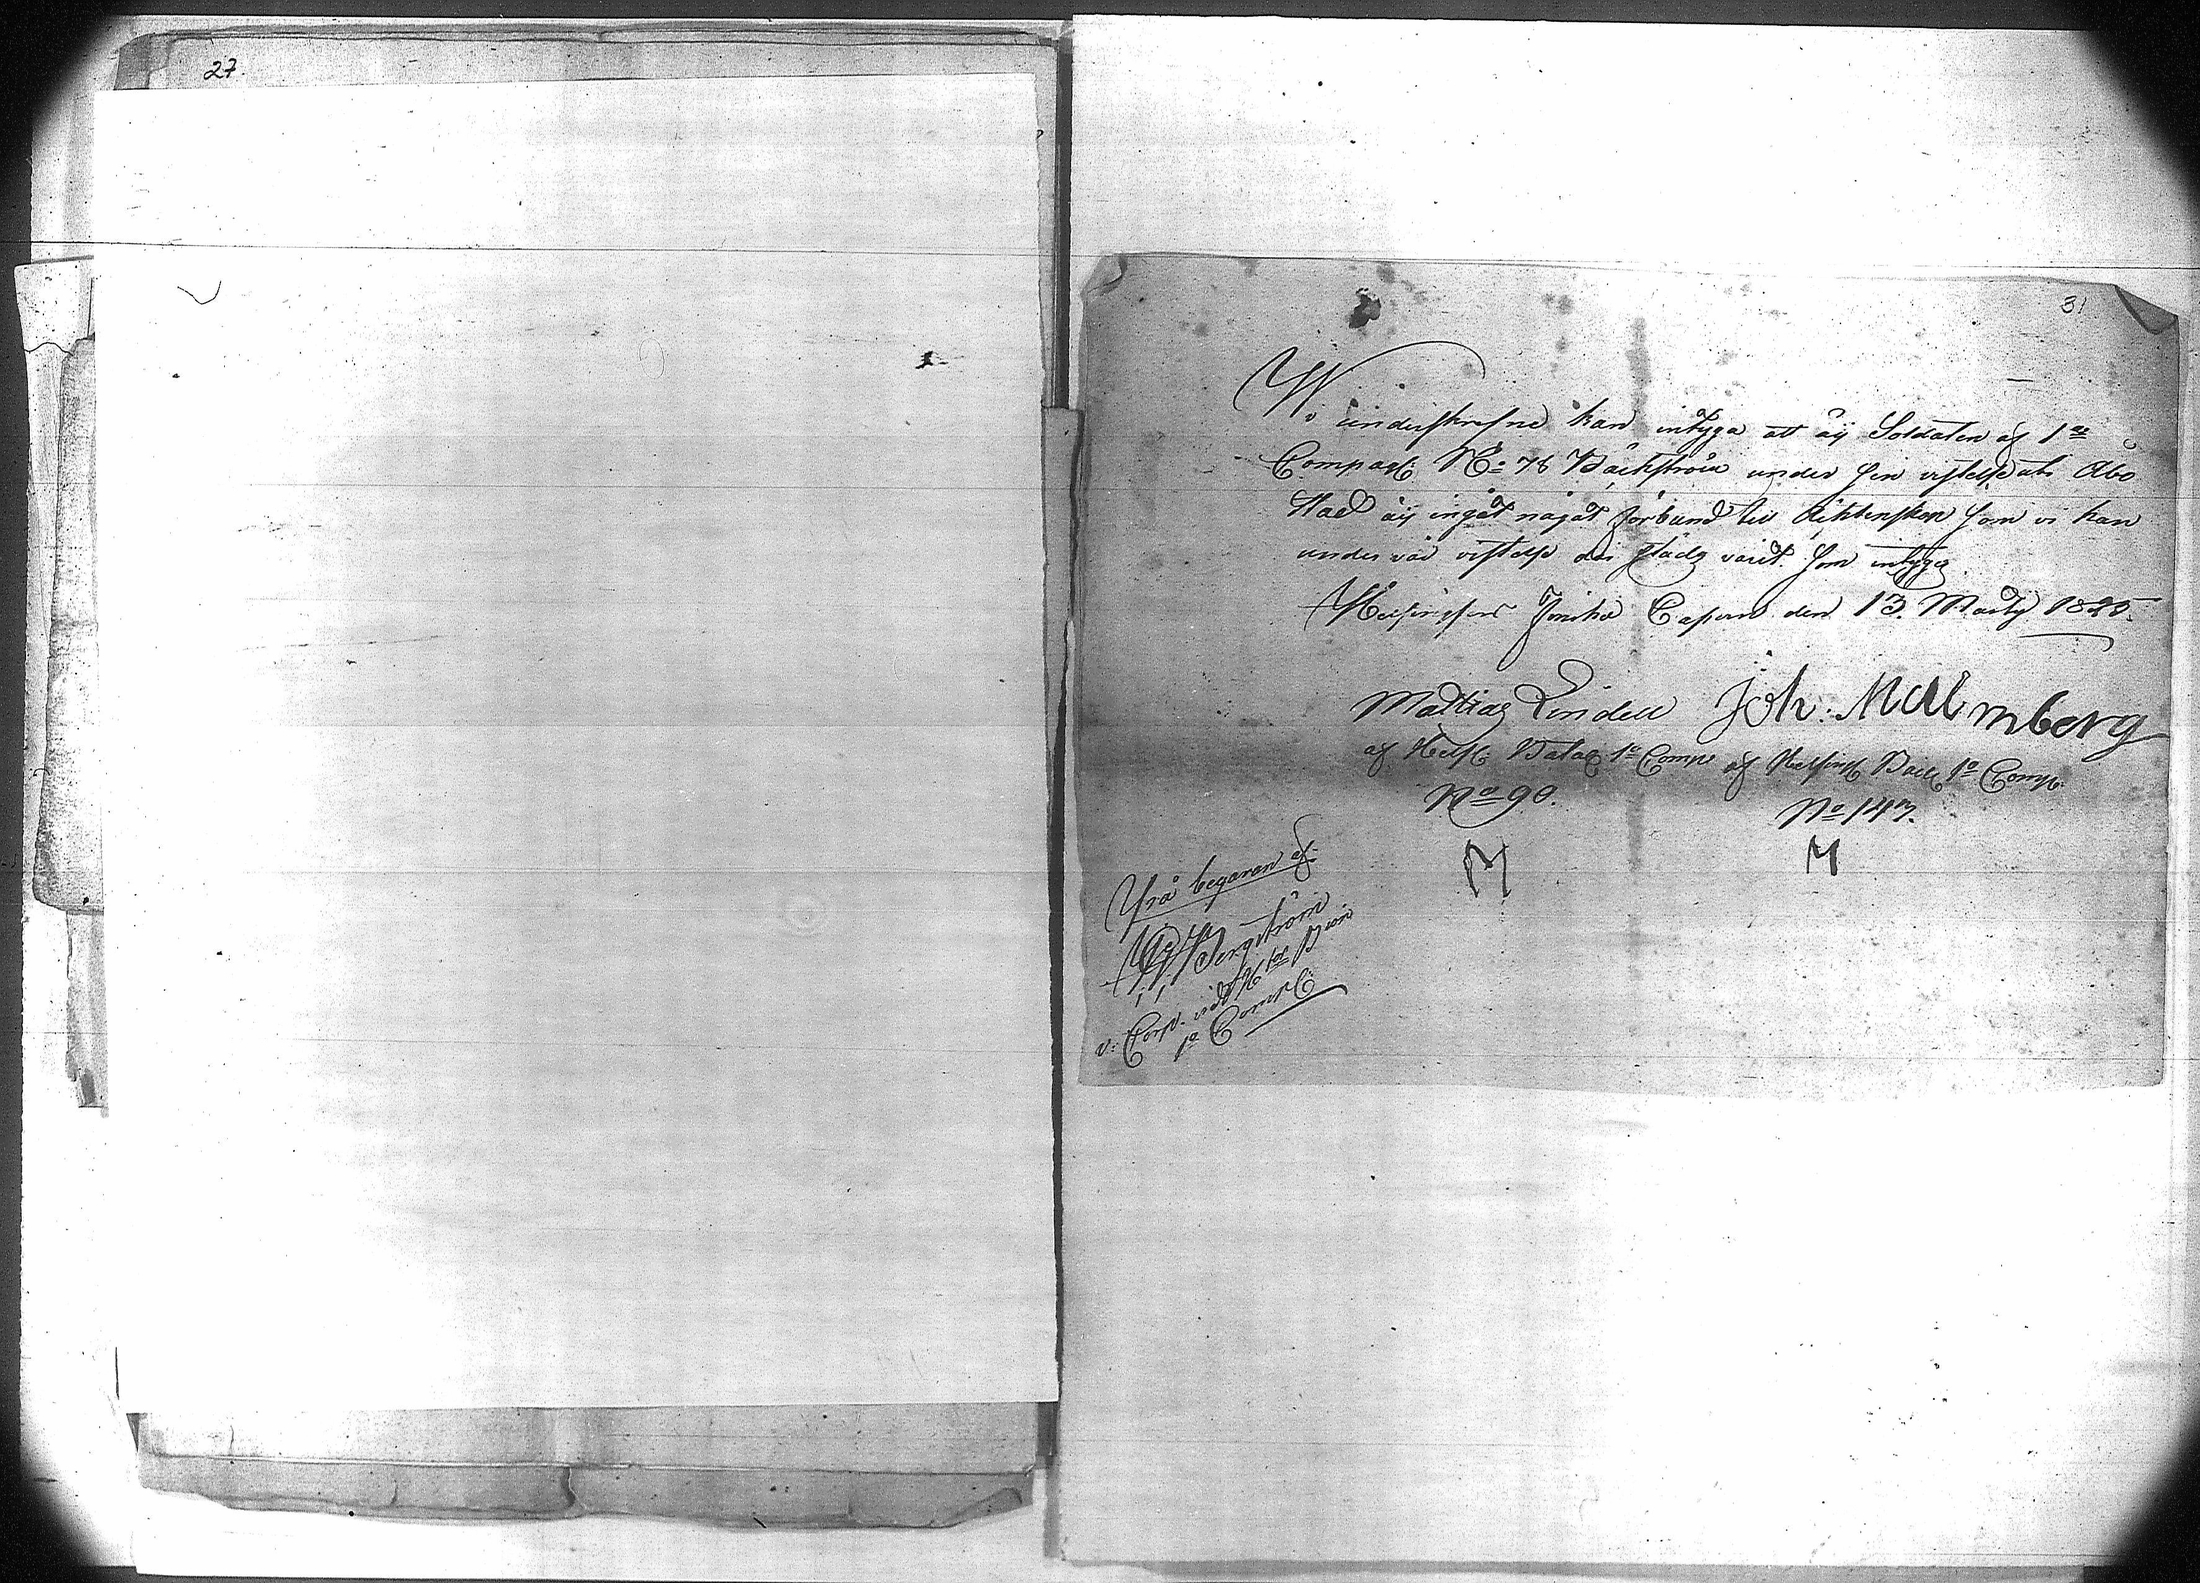 27.
31
Wi underskrefne kan intyga att äij Soldaten af 1ra
Compagt: No 78 Bäckström under sin vistelse uti Åbo
Stad äij ingåt något förbund till Ächtenskap som vi kan
under vår vistelse där städz varit. som intygas
Helsingfors Casern den 13. Martij
Mattias Lindell Joh: Malmberg
af Helsf: Batal 1a Comp: af Helsingf: Batl 1a Comp:
No 90. No 147.
M M
På begäran af
Bergström
v: Corp. vid
1a Comp: